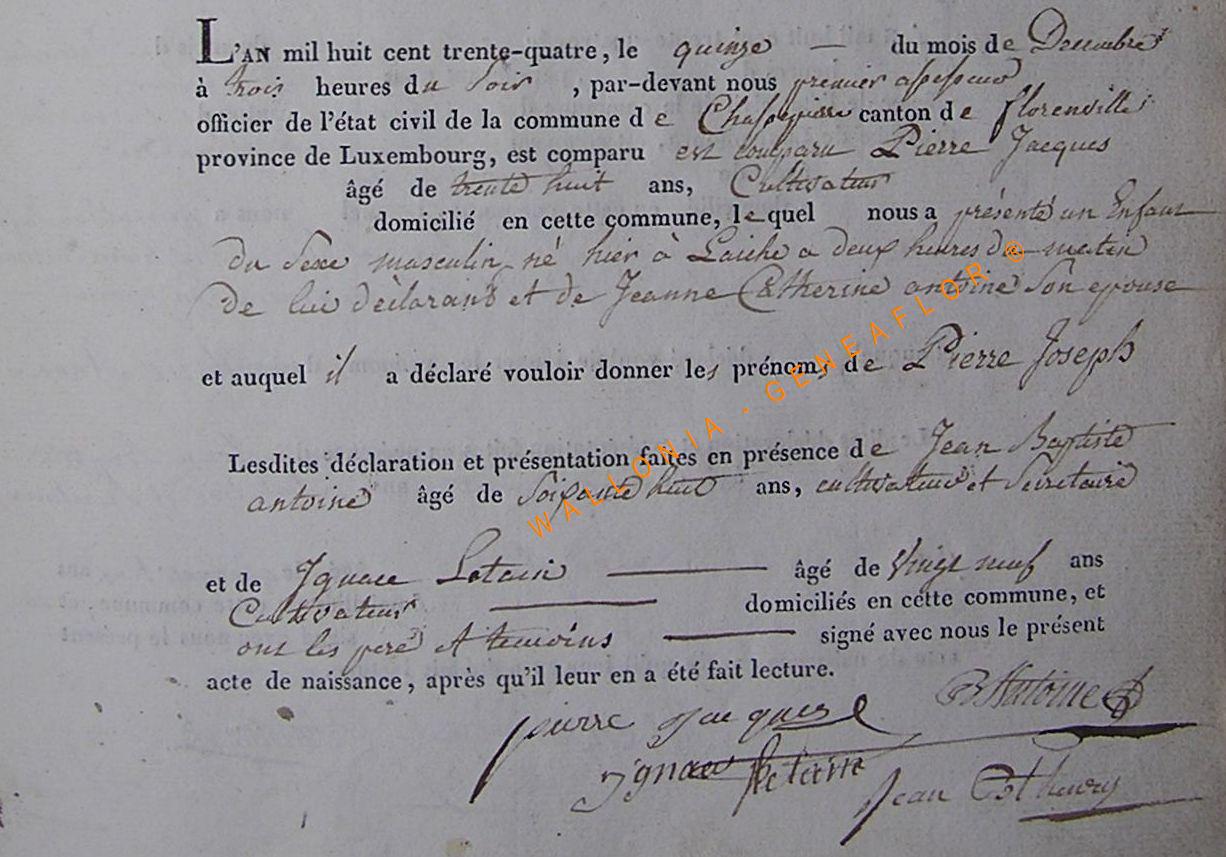 L'AN mil huit cent trente-quatre, le quinze — du mois de Decembre
à trois heures du soir , par-devant nous premier assesseur
officier de l'état civil de la commune de Chassepierre canton de florenville
province de Luxembourg, est comparu est comparu Pierre Jacques
âgé de trente huit ans, Cultivateur
domicilié en cette commune, lequel nous a présenté un Enfant
du Sexe masculin né hier à Laiche a deux heures du matin
De lui déclarant et de Jeanne Catherine antoine Son epouse
et auquel il a déclaré vouloir donner les prénoms de Pierre Joseph
Lesdites déclaration et présentation faites en présence de Jean Baptiste
antoine âgé de Soixante huit ans, cultivateur et Secretaire
et de Ignace Letaie — âgé de Vingt neuf ans
Cultivateur — domiciliés en cette commune, et
ont les pere et temoins — signé avec nous le présent
acte de naissance, après qu'il leur en a été fait lecture.
pierre Jacques Antoine
ignace
Jean henry
WALLONIA - GENEAFLOR ®